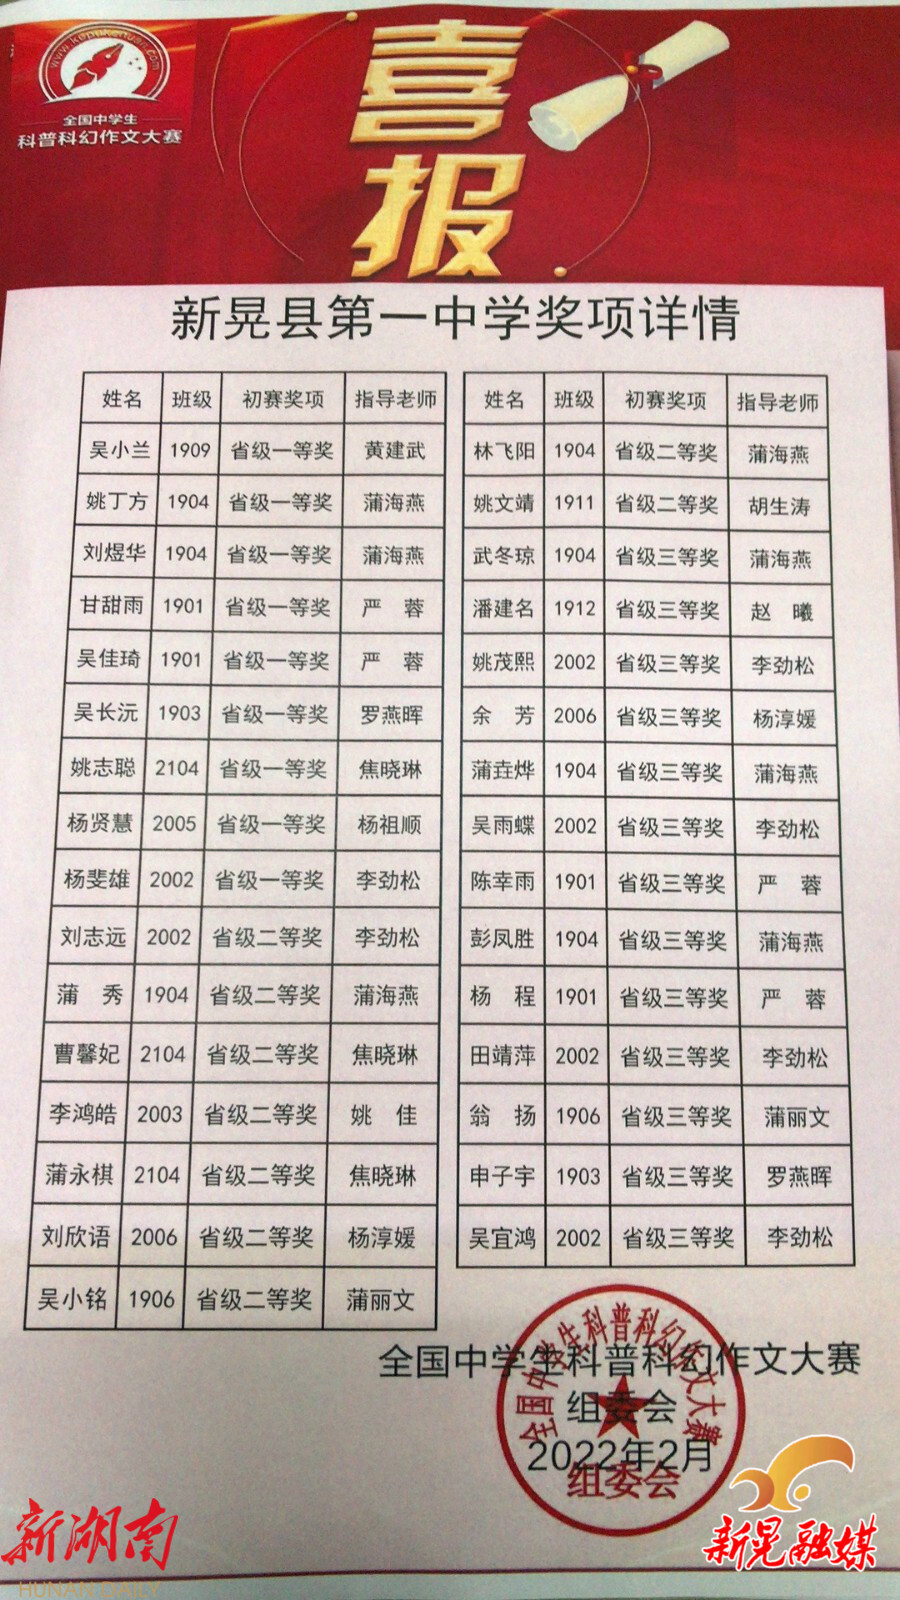 www.kepukehuan.com
全国中学生
科普科幻作文大赛
喜
报
新晃县第一中学奖项详情
姓名 班级 初赛奖项 指导老师
吴小兰 1909 省级一等奖 黄建武
姚丁方 1904 省级一等奖 蒲海燕
刘煜华 1904 省级一等奖 蒲海燕
甘甜雨 1901 省级一等奖 严 蓉
吴佳琦 1901 省级一等奖 严 蓉
吴长沅 1903 省级一等奖 罗燕晖
姚志聪 2104 省级一等奖 焦晓琳
杨贤慧 2005 省级一等奖 杨祖顺
杨斐雄 2002 省级一等奖 李劲松
刘志远 2002 省级二等奖 李劲松
蒲 秀 1904 省级二等奖 蒲海燕
曹馨妃 2104 省级二等奖 焦晓琳
李鸿皓 2003 省级二等奖 姚 佳
蒲永棋 2104 省级二等奖 焦晓琳
刘欣语 2006 省级二等奖 杨淳媛
吴小铭 1906 省级二等奖 蒲丽文
姓名 班级 初赛奖项 指导老师
林飞阳 1904 省级二等奖 蒲海燕
姚文靖 1911 省级二等奖 胡生涛
武冬琼 1904 省级三等奖 蒲海燕
潘建名 1912 省级三等奖 赵 曦
姚茂熙 2002 省级三等奖 李劲松
余 芳 2006 省级三等奖 杨淳媛
蒲垚烨 1904 省级三等奖 蒲海燕
吴雨蝶 2002 省级三等奖 李劲松
陈幸雨 1901 省级三等奖 严 蓉
彭凤胜 1904 省级三等奖 蒲海燕
杨 程 1901 省级三等奖 严 蓉
田靖萍 2002 省级三等奖 李劲松
翁 扬 1906 省级三等奖 蒲丽文
申子宇 1903 省级三等奖 罗燕晖
吴宜鸿 2002 省级三等奖 李劲松
全国中学生科普科幻作文大赛
组委会
2022年2月
全国中学生科普科幻作文大赛
组委会
新湖南
HUNAN DAILY
新晃融媒